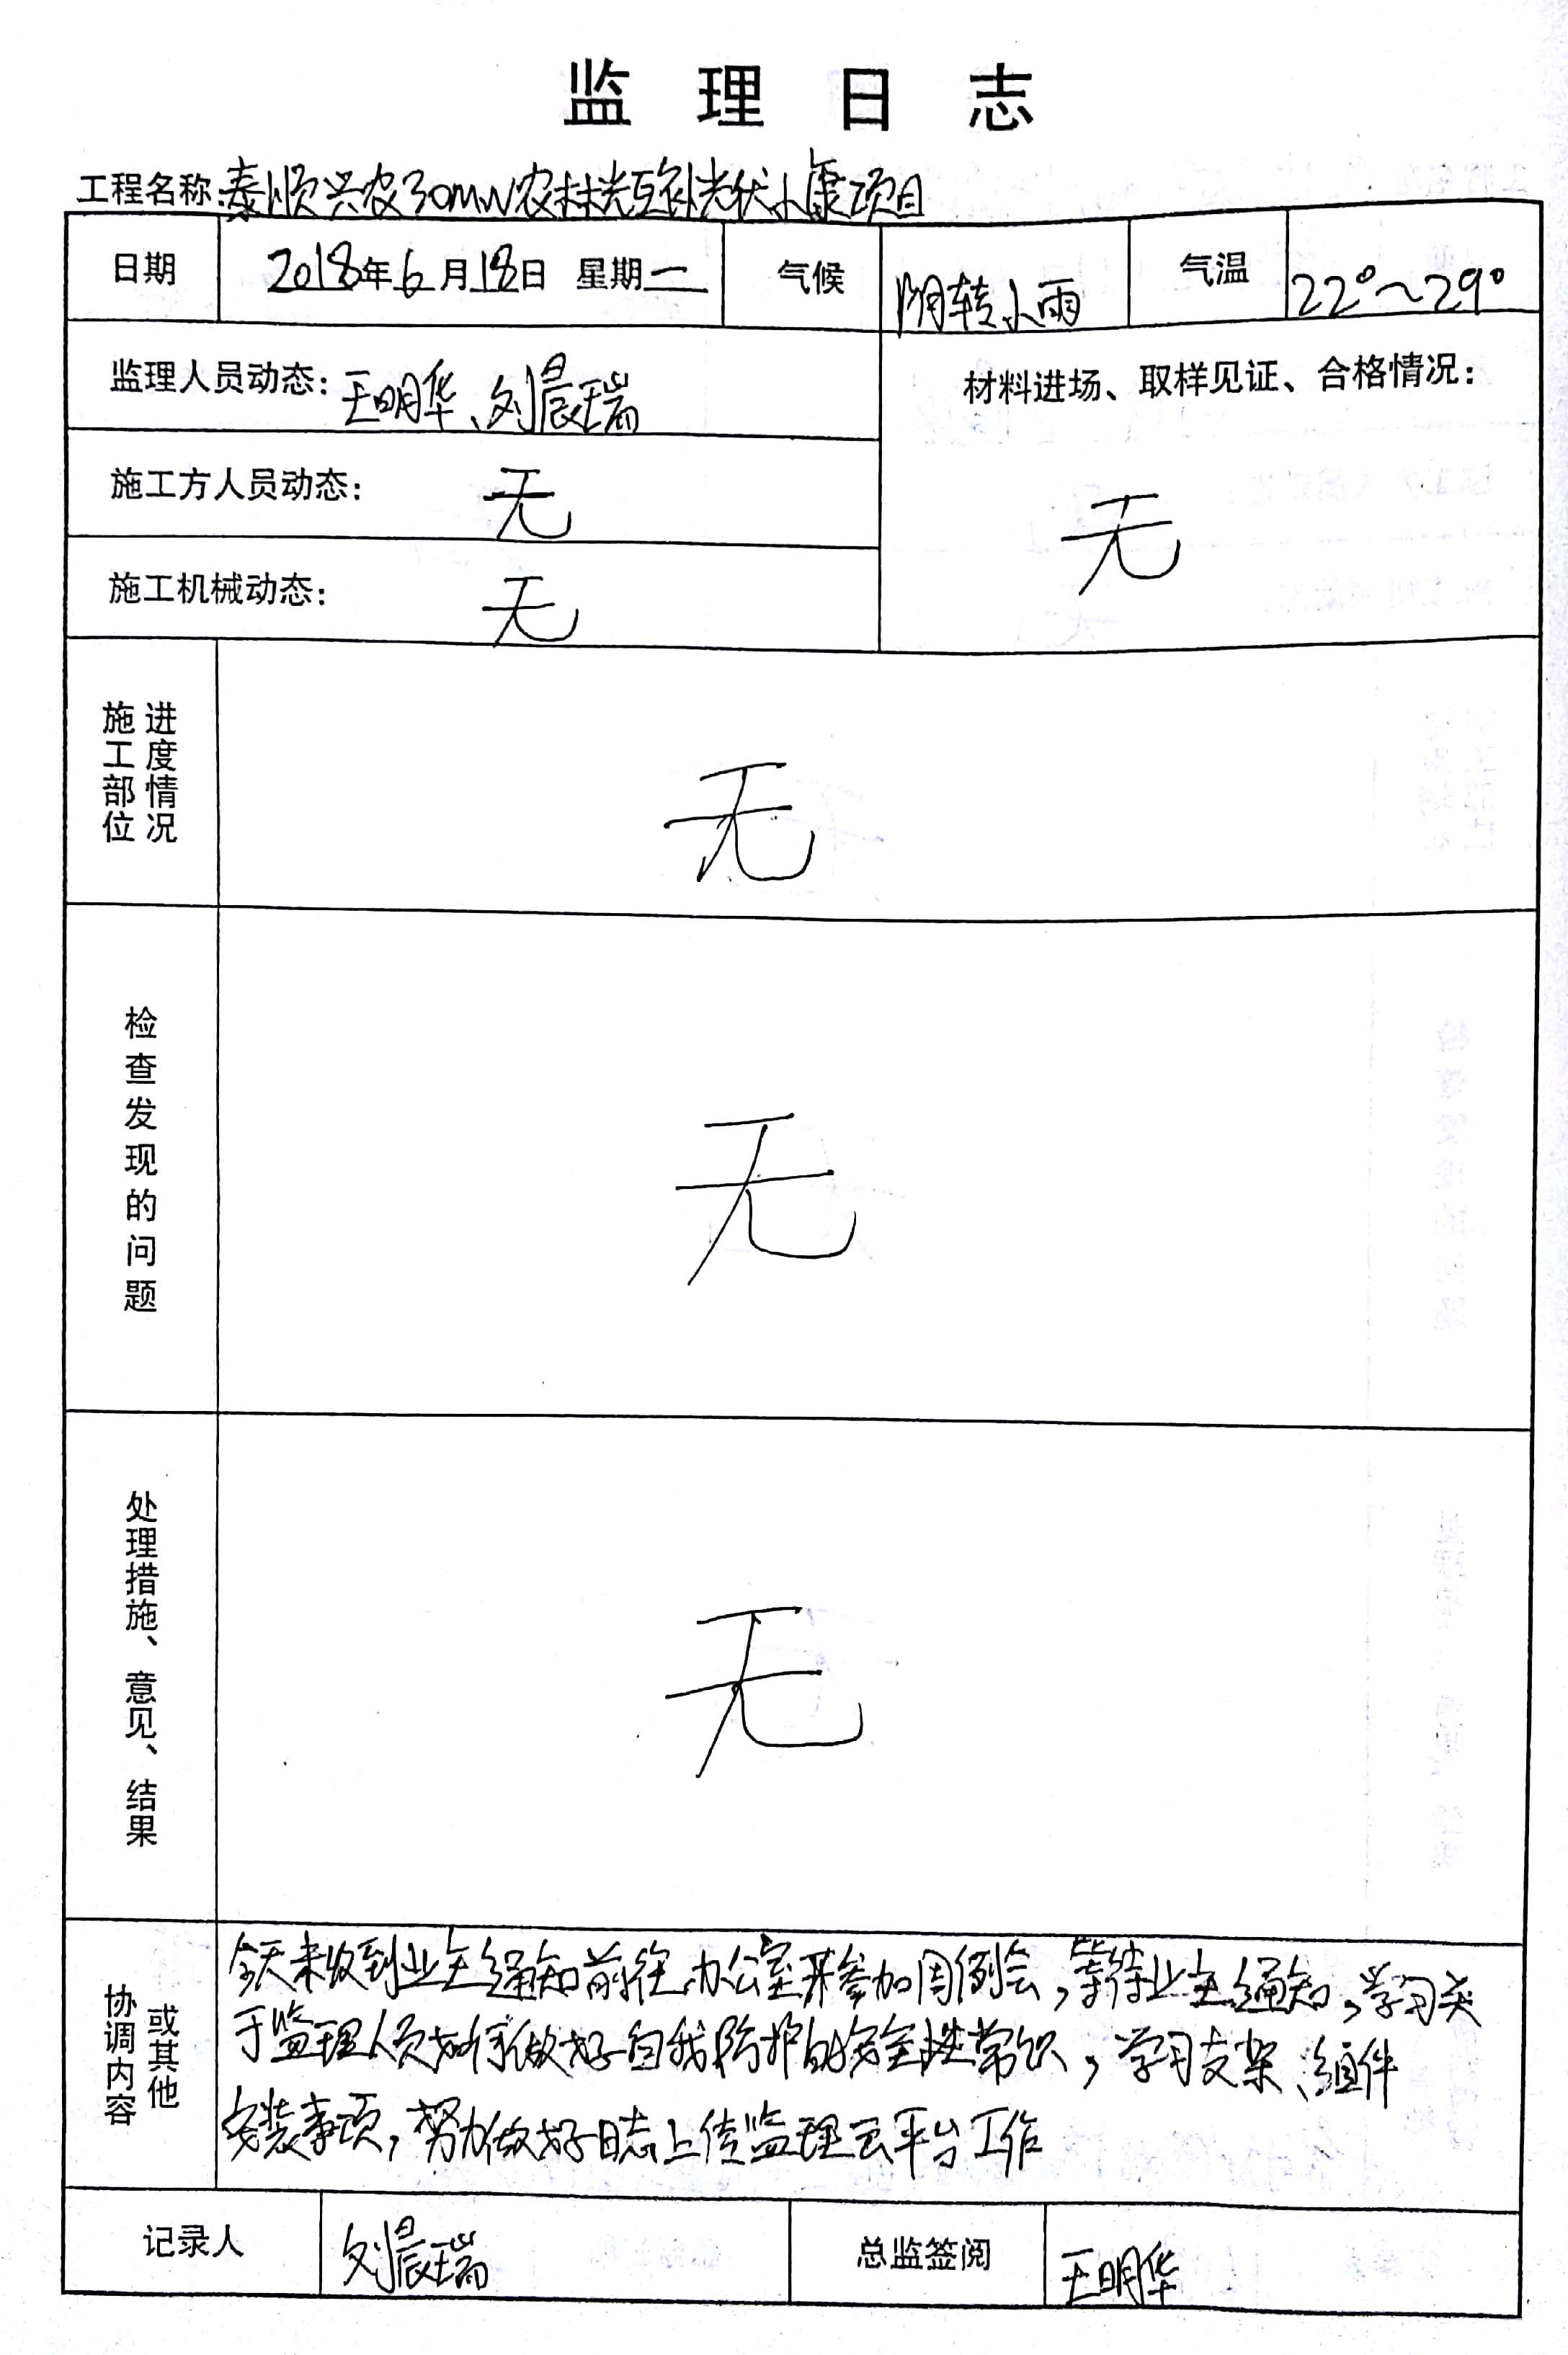 监理日志
工程名称:泰顺兴农30MW农林光互补光伏小康项目
日期 2018年6月18日 星期一 气候 阴转小雨 气温 22°~29°
监理人员动态:王明华、刘晨瑞
材料进场、取样见证、合格情况:
施工方人员动态: 无
无
施工机械动态: 无
施工部位
进度情况
无
检查发现的问题
无
处理措施、意见、结果
无
协调内容
或其他
今天未收到业主通知前往办公室开参加周例会,等待业主通知,学习关
于监理人员如何做好自我防护的安全性常识,学习支架、组件
安装事项,努力做好日志上传监理云平台工作
记录人 刘晨瑞 总监签阅 王明华